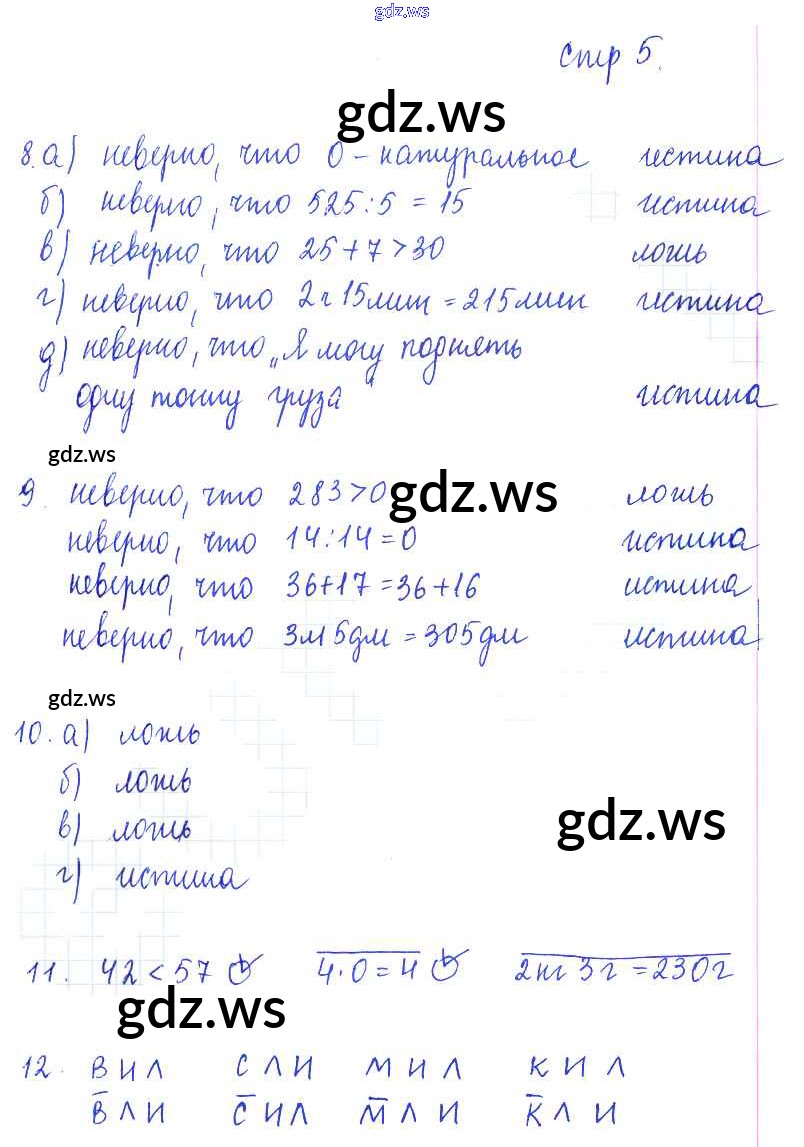 gdz.ws
стр 5.
gdz.ws
8. а) неверно, что 0 - натуральное истина
б) неверно, что 525:5 = 15 истина
в) неверно, что 25+7>30 ложь
г) неверно, что 2ч 15мин = 215мин истина
д) неверно, что „Я могу поднять
одну тонну груза" истина
gdz.ws
9. неверно, что 283>0 gdz.ws ложь
неверно, что 14:14=0 истина
неверно, что 36+17=36+16 истина
неверно, что 3м 5дм = 305дм истина
gdz.ws
10. а) ложь
б) ложь
в) ложь
gdz.ws
г) истина
11. 42 < 57 4·0=4 2кг 3г = 230г
gdz.ws
12. В И Л С Л И М И Л К И Л
В̅ Л И С̅ И Л М̅ Л И К̅ Л И